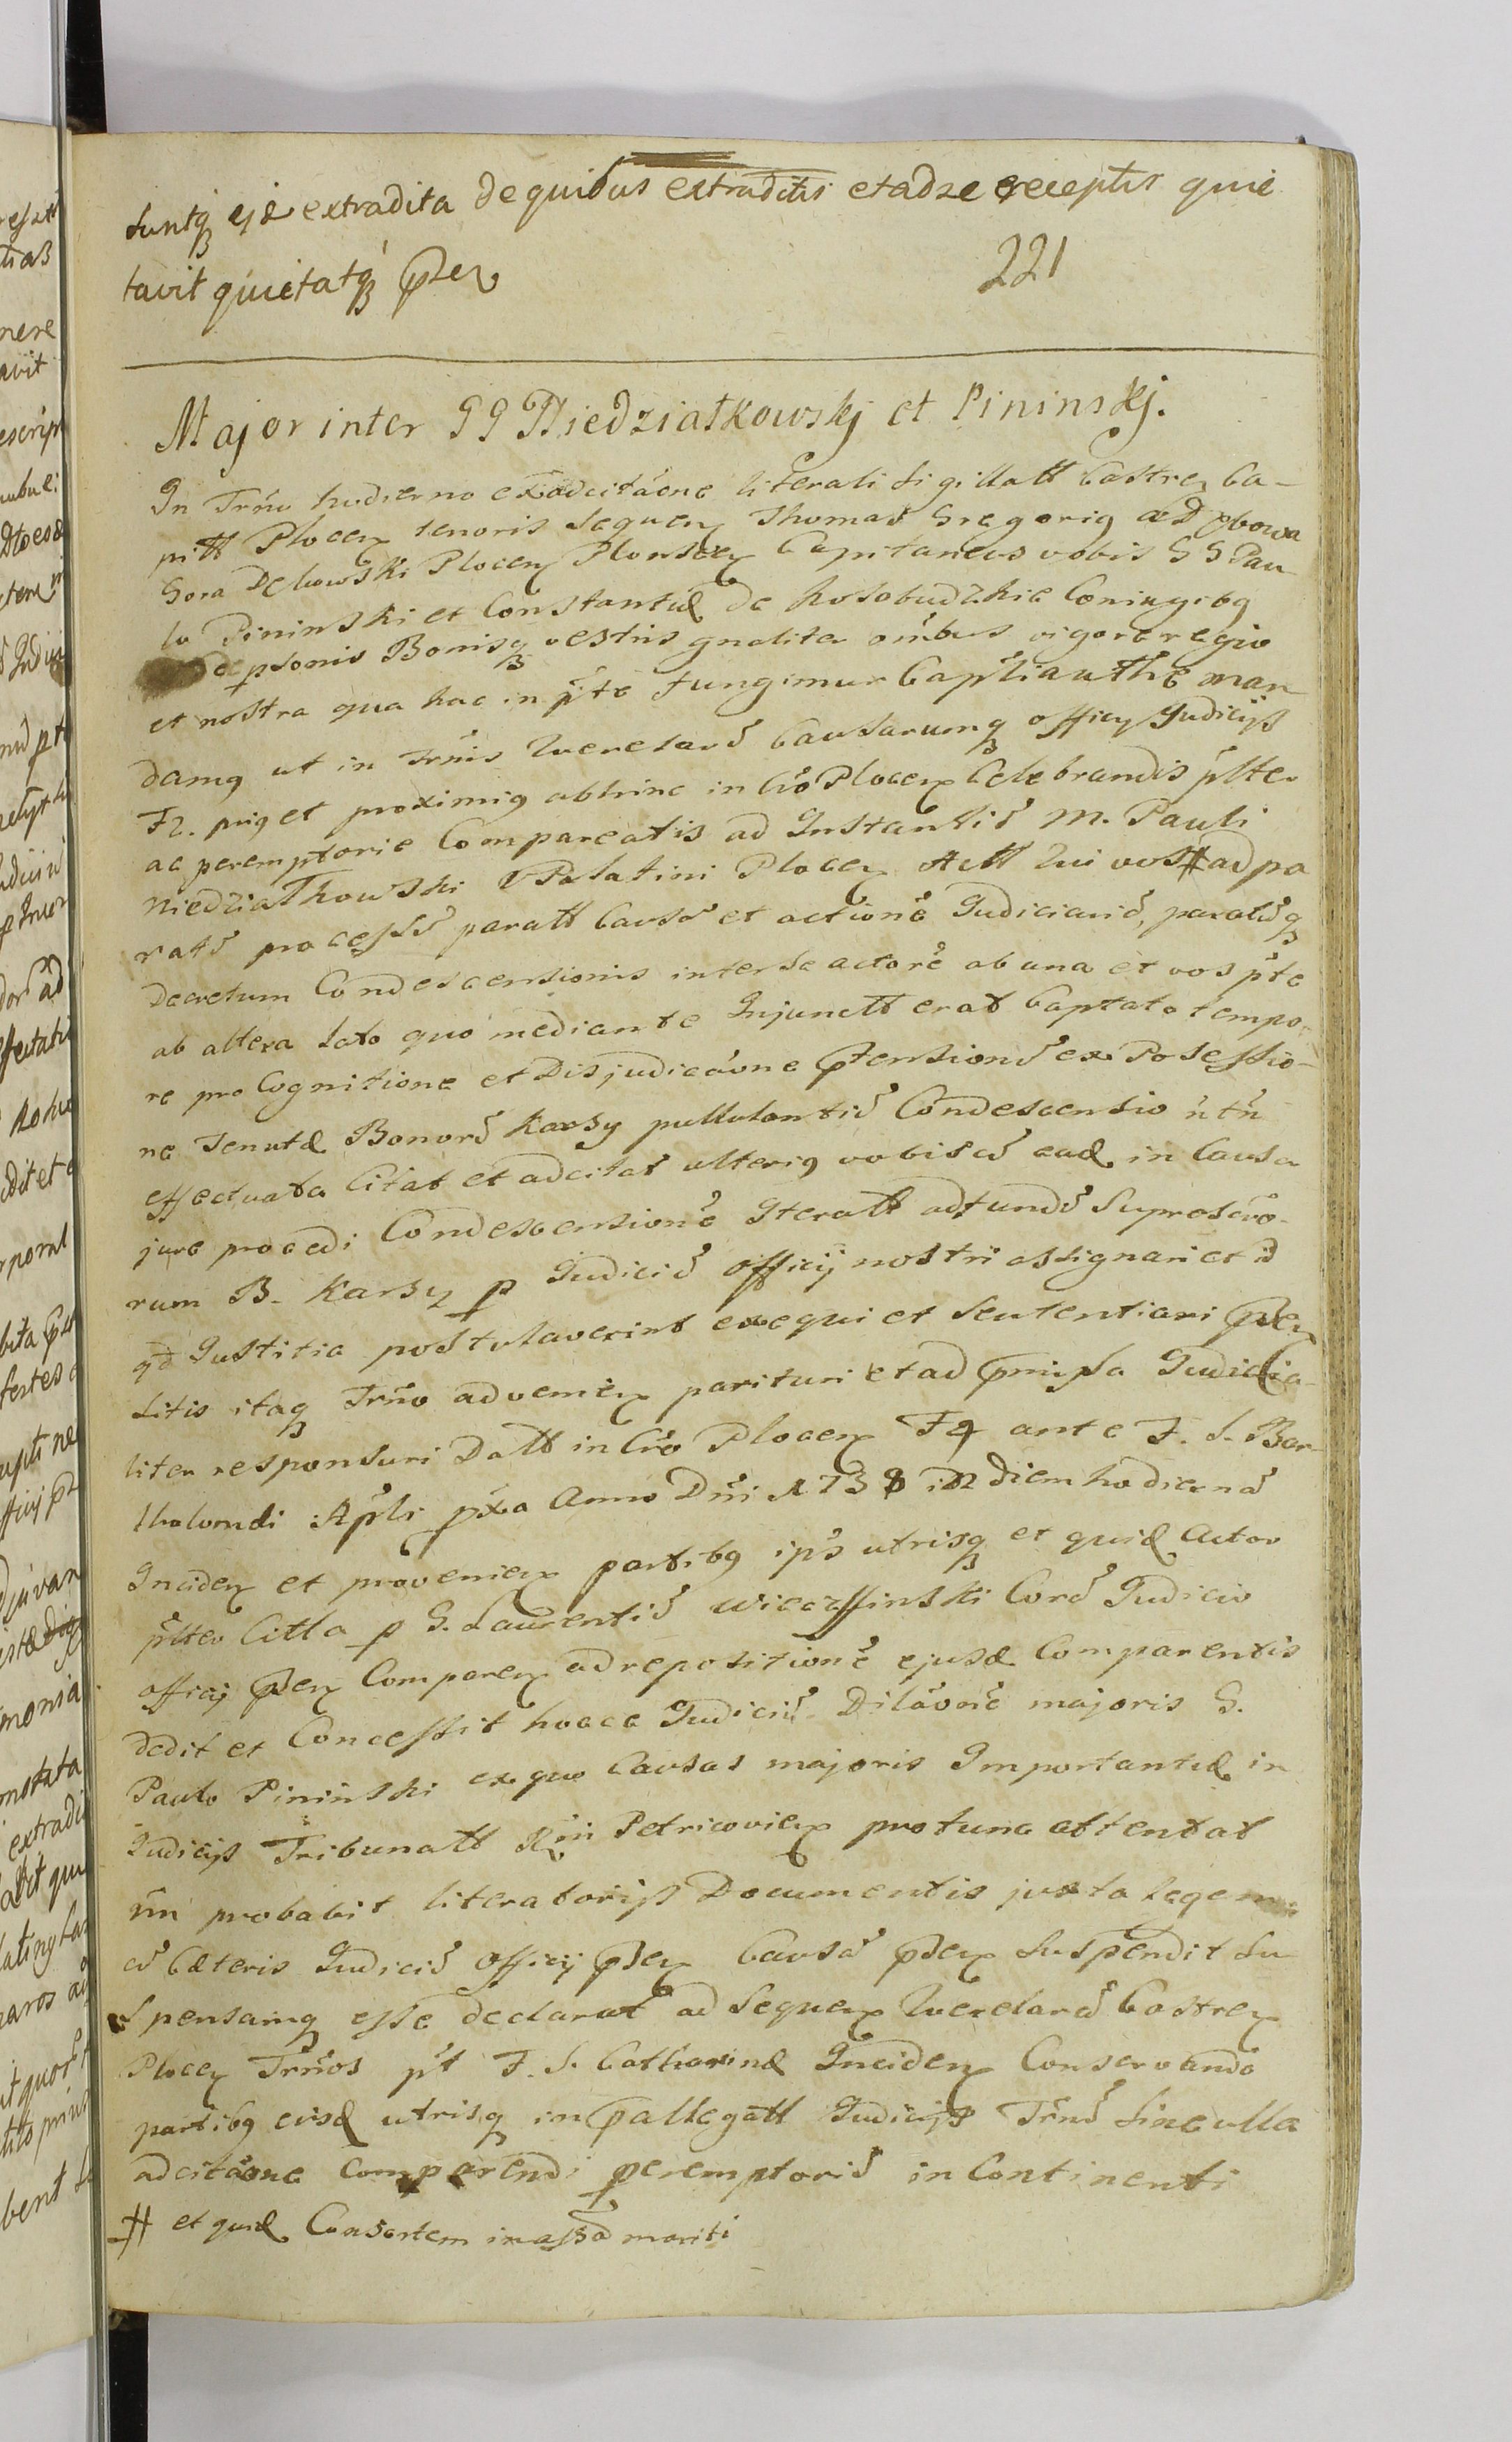 suntq3 ejd extradita de quibus extraditis et ad se receptis quie
tavit quietatq3 pntn
221
Major inter GG Niedziałkowskj et Pininskj.
In Trño hodierno ex adcitãone literali sigillatt Castren Ca-
pitt Plocen tenoris sequen Thomas Gregorig a Dębowa
Gora Dębowski Plocen Plonscen Capitaneus vobis GG Pau
lo Pininski et Constantiæ de Kosobudzkie Conjugibg
de psonis Bonisq3 vestris gnaliter oibus vigore regio
et nostra qua hac in pte fungimur Capliauthe man
damg ut in Trnis Querelarũ Causarumq3 officy Judicijs
F2. prig et proximig abhinc in Cró Plocen Celebrandis plter
ac peremptorie Compareatis ad Instantiã M. Pauli
Niedziałkowski VPalatini Plocen Actt Qui vos # ad pa
ratũ processũ paratt Causã et actionẽ Judiciariã, paratũq3
Decretum Condescensionis inter se actorẽ ab una et vos pte
ab altera lato quo mediante Injunctt erat Captato tempo-
re pro Cognitione et Disjudicãone ptensionũ ex Possessio-
ne Tenutæ Bonorũ Karsy pullulantiũ Condescensio ntn
effectuata Citat et adcitat ulterig vobiscũ ead in Causa
jure procedi Condescensionẽ Iteratt ad fundũ Suprascrõ-
rum B. Karsy p Judiciũ officij nostri assignari et id
qd Justitia postulaverint exequi et sententiari pntn
sitis itaq3 Trño advenien parituri et ad pmissa Judicia-
liter responsuri Datt in Cró Plocen F4 ante F. S. Bar-
tholomæi Apli pxa Anno Dñi 1738 in diem hodiernã
Inciden et provenien partibg ipis utrisq3 et quid Actor
plter Citta p G. Laurentiũ Wieczffinski Corã Judicio
officij pntn Comparen ad repositionẽ ejusd Comparentis
dedit et Concessit hocce Judiciũ Dilãonẽ majoris G.
Paulo Pininski ex quo Causas majoris Importantiæ in
Judicijs Tribunatt Rni Petricovien protunc attentat
uti probabit literatorijs Documentis juxta legem
cũ Cæteris Judiciũ officij pntn Causã pntn suspendit su
spensamq3 esse declarat ad sequen Querelarũ Castren
Plocen Trños pt F. S. Catharinæ Inciden Conservando
partibg eisd utrisq3 in pallegatt Judicijs Trnũ sine ulla
adcitãone comparendi peremptoriũ in Continenti
# et quid Consortem in assã mariti